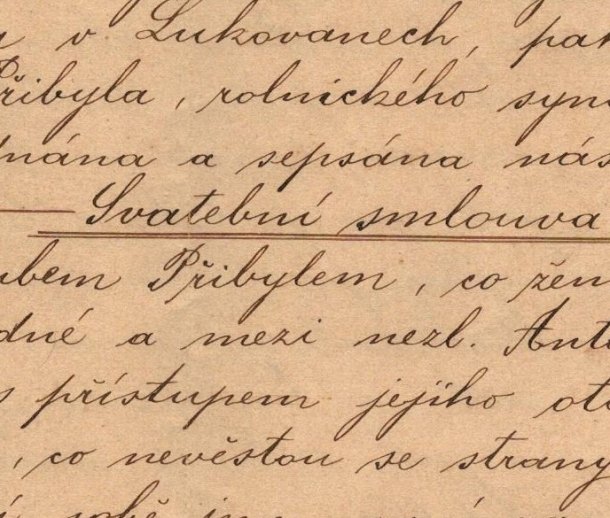 v Lukovanech, pak
Přibyla, rolnického syn
nána a sepsána nás
Svatební smlouva
bem Přibylem, co žen
dné a mezi nezl. Anto
s přístupem jejího oto
, co nevěstou se strany
sobě